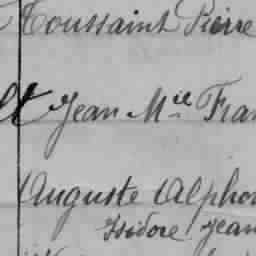 Toussaint Pierre
Jean M.elle Fran
Auguste Alphon
Isidore Jean